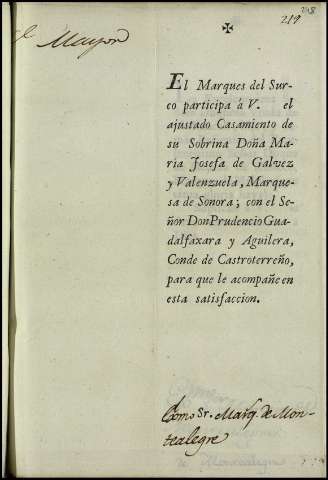 219
Mayor
El Marques del Sur-
co participa à V. el
ajustado Casamiento de
su Sobrina Doña Ma-
ria Josefa de Galvez
y Valenzuela, Marque-
sa de Sonora; con el Se-
ñor Don Prudencio Gua-
dalfaxara y Aguilera,
Conde de Castroterreño,
para que le acompañe en
esta satisfaccion.
Exmo Sr. Marq. de Mon-
tealegre